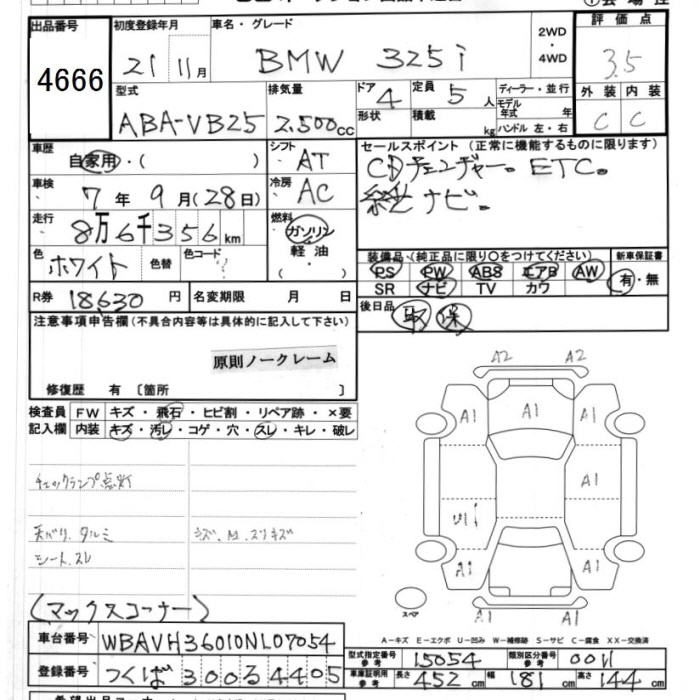 出品番号 初度登録年月 車名・グレード 評価点
4666 21年11月 BMW 325i 2WD・4WD 3.5
型式 排気量 ドア 4 定員 5人 ディーラー・並行 外装 内装
ABA-VB25 2.500cc 形状 積載 kg モデル年式 年 ハンドル 左・右 C C
車歴 自家用・( ) シフト AT セールスポイント (正常に機能するものに限ります)
車検 7年9月(28日) 冷房 AC CDチェンジャー。ETC。
走行 8万6千356km 燃料 ガソリン 軽油 ・( ) ナビ。
色 ホワイト 色替 色コード 装備品 (純正品に限り○をつけてください) 新車保証書
PS PW ABS エアB AW 有・無
R券 18,630円 名変期限 月 日 SR ナビ TV カワ
注意事項申告欄 (不具合内容等は具体的に記入して下さい) 後日品 取 保
原則ノークレーム
修復歴 有 〔箇所 〕
検査員 FW キズ・飛石・ヒビ割・リペア跡・×要
記入欄 内装 キズ・汚レ・コゲ・穴・スレ・キレ・破レ
A2 A2
A1 A1 A1
A1 A1
U1
A1 A1
チェックランプ点灯
天ばり、タルミ キズ、M、スリキズ
シート、スレ
(マックスコーナー)
スペア
A-キズ E-エクボ U-凹み W-補修跡 S-サビ C-腐食 XX-交換済
車台番号 WBAVH36010NL07054
型式指定番号 参考 15054 類別区分番号 参考 0011
登録番号 つくば300る4405
車庫証明用 参考 長さ 452cm 幅 181cm 高さ 144cm